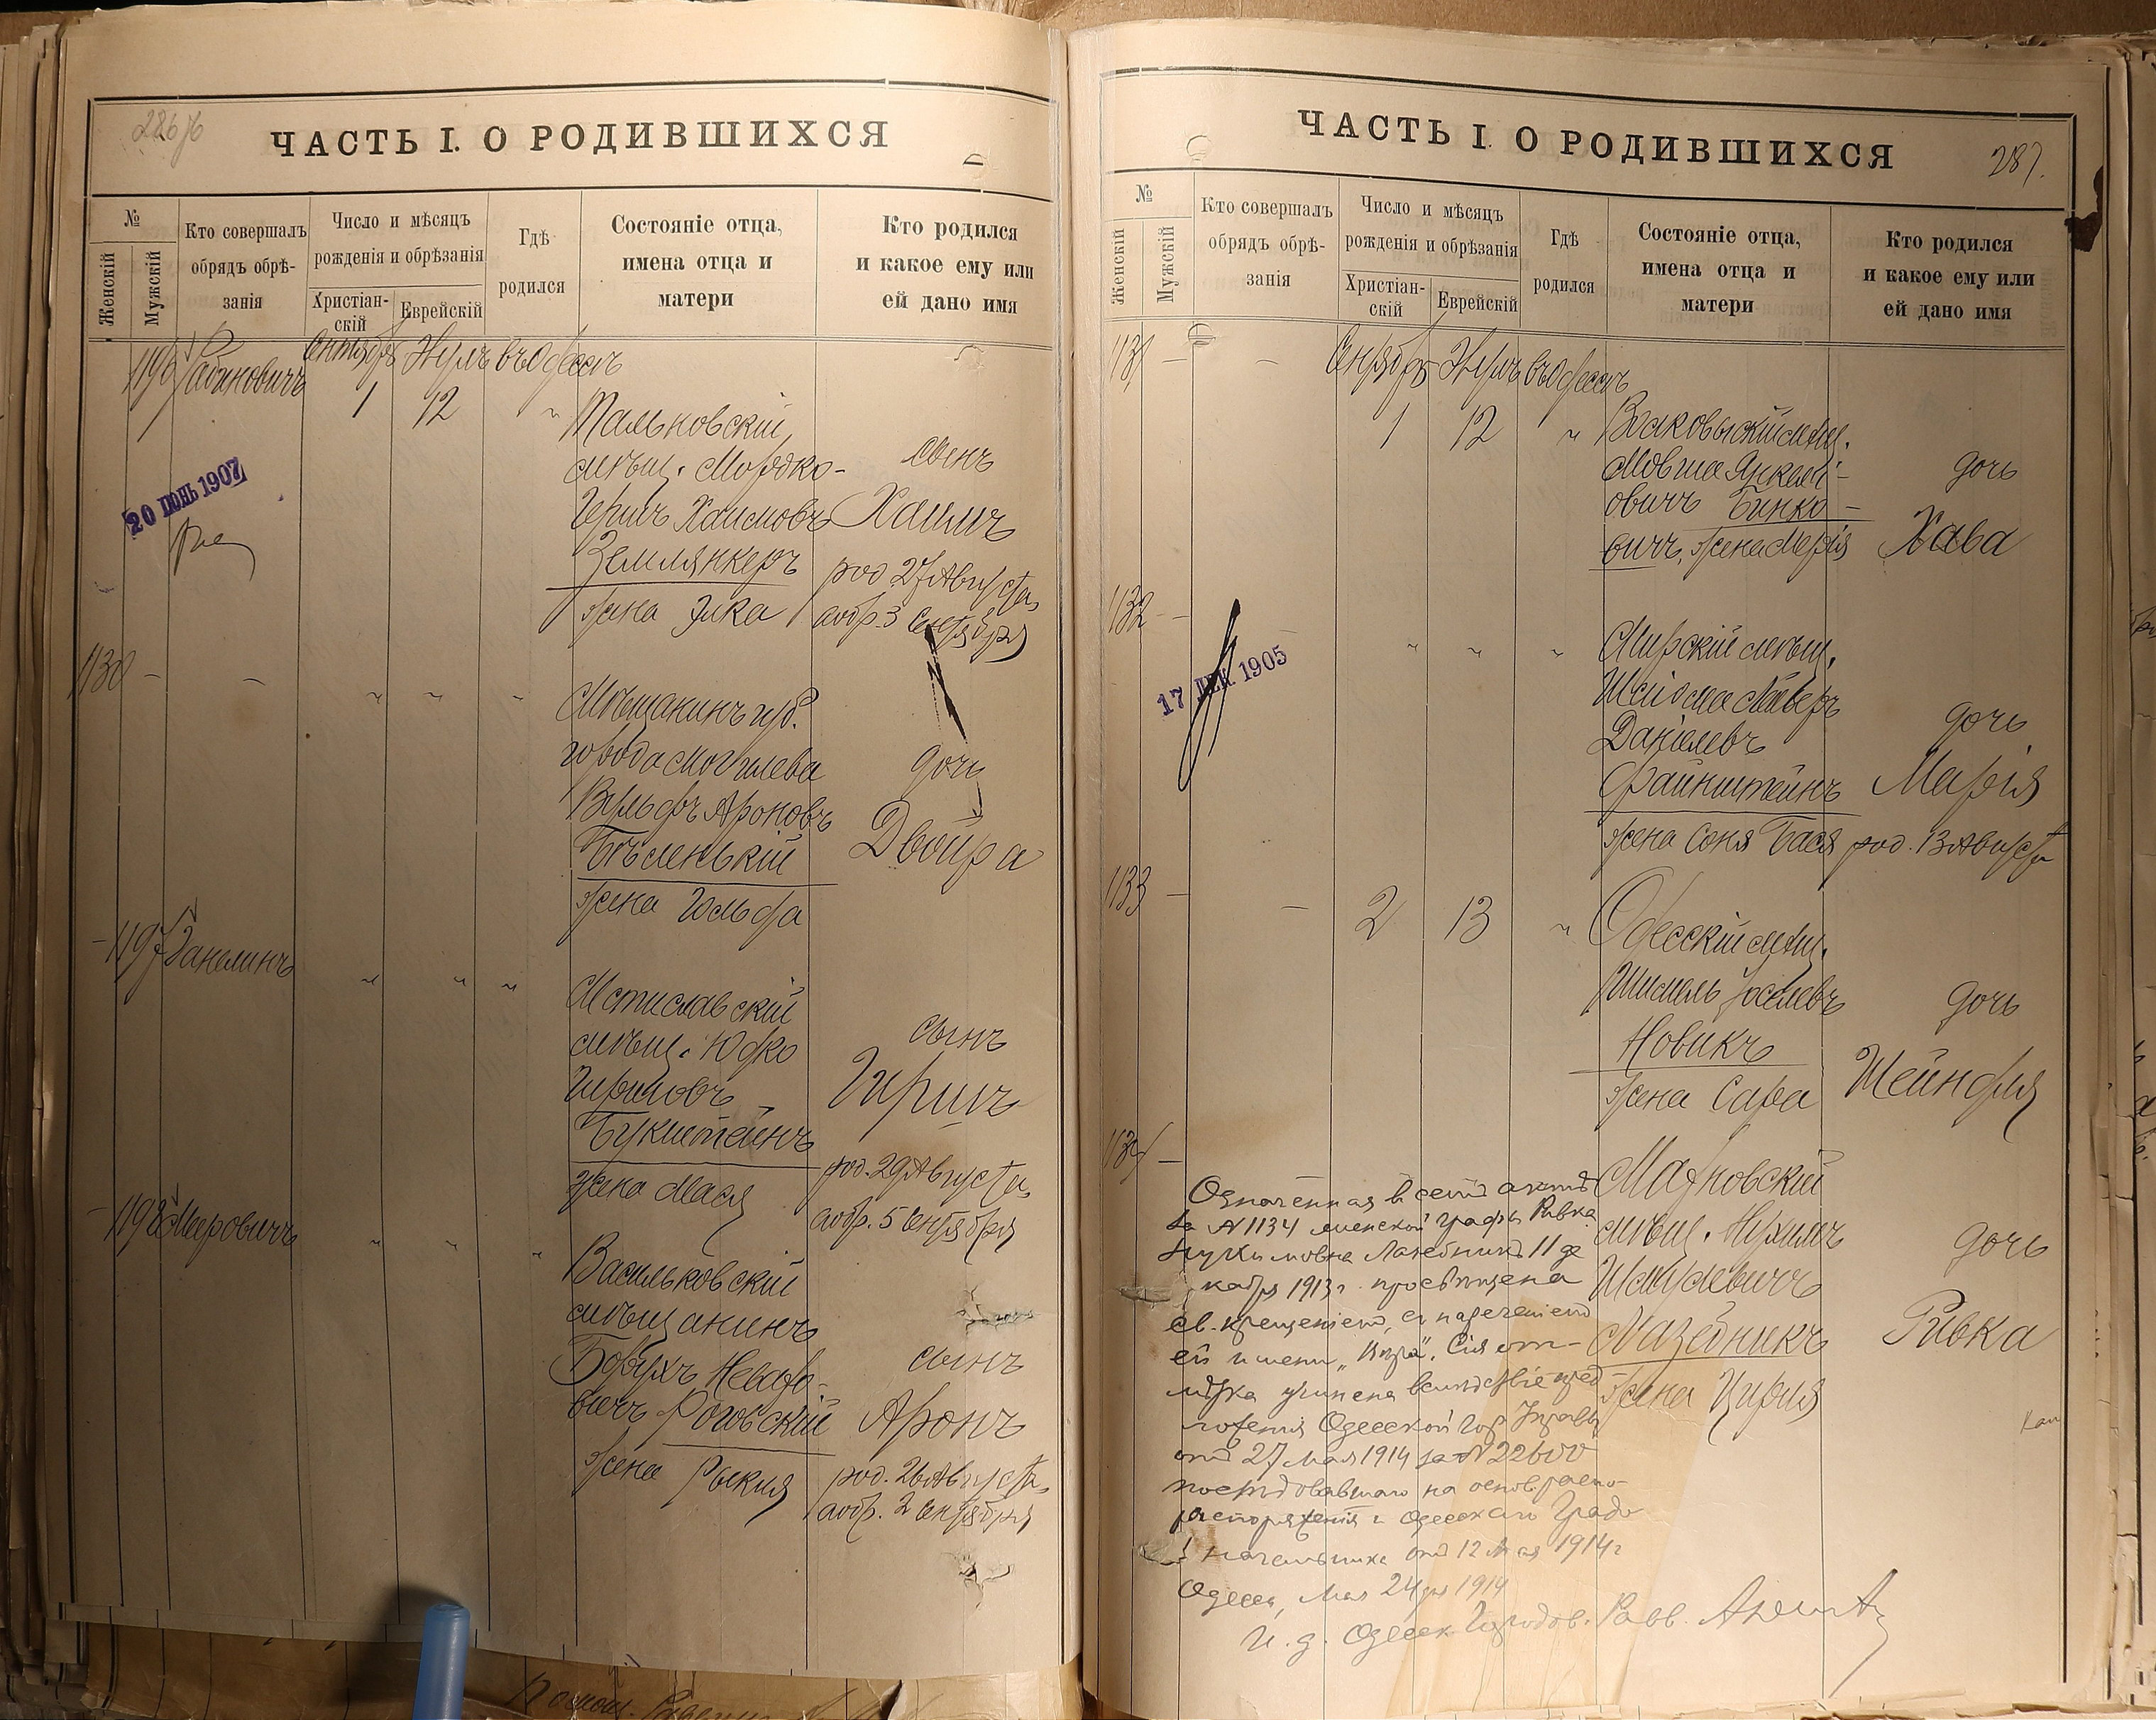 ЧАСТЬ I. О РОДИВШИХСЯ
№
Женскій
Мужскій
Кто совершалъ
обрядъ обрѣ-
занія
Число и мѣсяцъ
рожденія и обрѣзанія
Христіан-
скій
Еврейскій
Гдѣ
родился
Состояніе отца,
имена отца и
матери
Кто родился
и какое ему или
ей дано имя
1196 Рабиновичъ Сентябрь Элулъ въ Одессѣ
1 12 "
Тальновскій
мѣщ. Мордко-
Гершъ Хаимовъ
Землянкеръ
жена Элка
сынъ
Хаимъ
род 27 Августа
а обр. 3 Сентября
20 ІЮНЬ 1907
1130 — — " " "
Мѣщанинъ губ.
города Могилева
Вульфъ Ароновъ
Бѣленькій
жена Гольда
дочь
Двойра
1197 Занелинъ " " "
Мстиславскій
мѣщ. Юдко
Гиршовъ
Букштейнъ
жена Мася
сынъ
Гиршъ
род. 29 Августа
а обр. 5 Сентября
1198 Мееровичъ " " "
Васильковскій
мѣщанинъ
Борухъ
вичъ Роговскій
жена Рыкля
сынъ
Аронъ
род. 26 Августа
а обр. 2 Сентября
ЧАСТЬ I. О РОДИВШИХСЯ
287.
№
Женскій
Мужскій
Кто совершалъ
обрядъ обрѣ-
занія
Число и мѣсяцъ
рожденія и обрѣзанія
Христіан-
скій
Еврейскій
Гдѣ
родился
Состояніе отца,
имена отца и
матери
Кто родился
и какое ему или
ей дано имя
1131 — — Сентябрь Элулъ въ Одессѣ
1 12 "
мѣщ.
Мовша Янкелі-
овичъ Бинко-
вичъ, жена Марія
дочь
Хава
1132 — " " "
17 ДЕК. 1905
Мирскій мѣщ.
Шлйома Мееръ
Даніелевъ
Файнштейнъ
жена Соня Бася
дочь
Марія
род. 13 Августа
1133 — — 2 13 "
Одесскій мѣщ.
Шмиель Іоселевъ
Новикъ
жена Сара
дочь
Шейндля
1134 —
Махновскій
мѣщ. Нухимъ
Шмулевичъ
Лазебникъ
жена Цирля
дочь
Ривка
Означенная въ семъ актѣ
за № 1134 женской графы Ривка
Нухимовна Лазебникъ 11 де
кабря 1913 г. просвѣщена
св. крещеніемъ, съ нареченіемъ
ей имени „Вѣра“. Сія от-
мѣтка учинена вслѣдствіе пред
ложенія Одесской Гор Управы
отъ 27 Мая 1914 за № 22600
послѣдовавшаго на основ. распо-
распоряженія г. Одесскаго Градо
начальника отъ 12 Мая 1914 г
Одесса, Мая 24 дня 1914
И. д. Одесск. Городов. Равв.